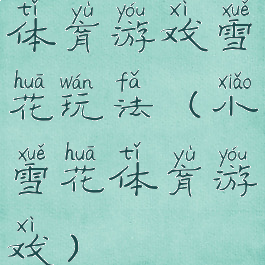 tǐ yù yóu xì xuě
体育游戏雪
huā wán fǎ xiǎo
花玩法（小
xuě huā tǐ yù yóu
雪花体育游
xì
戏）